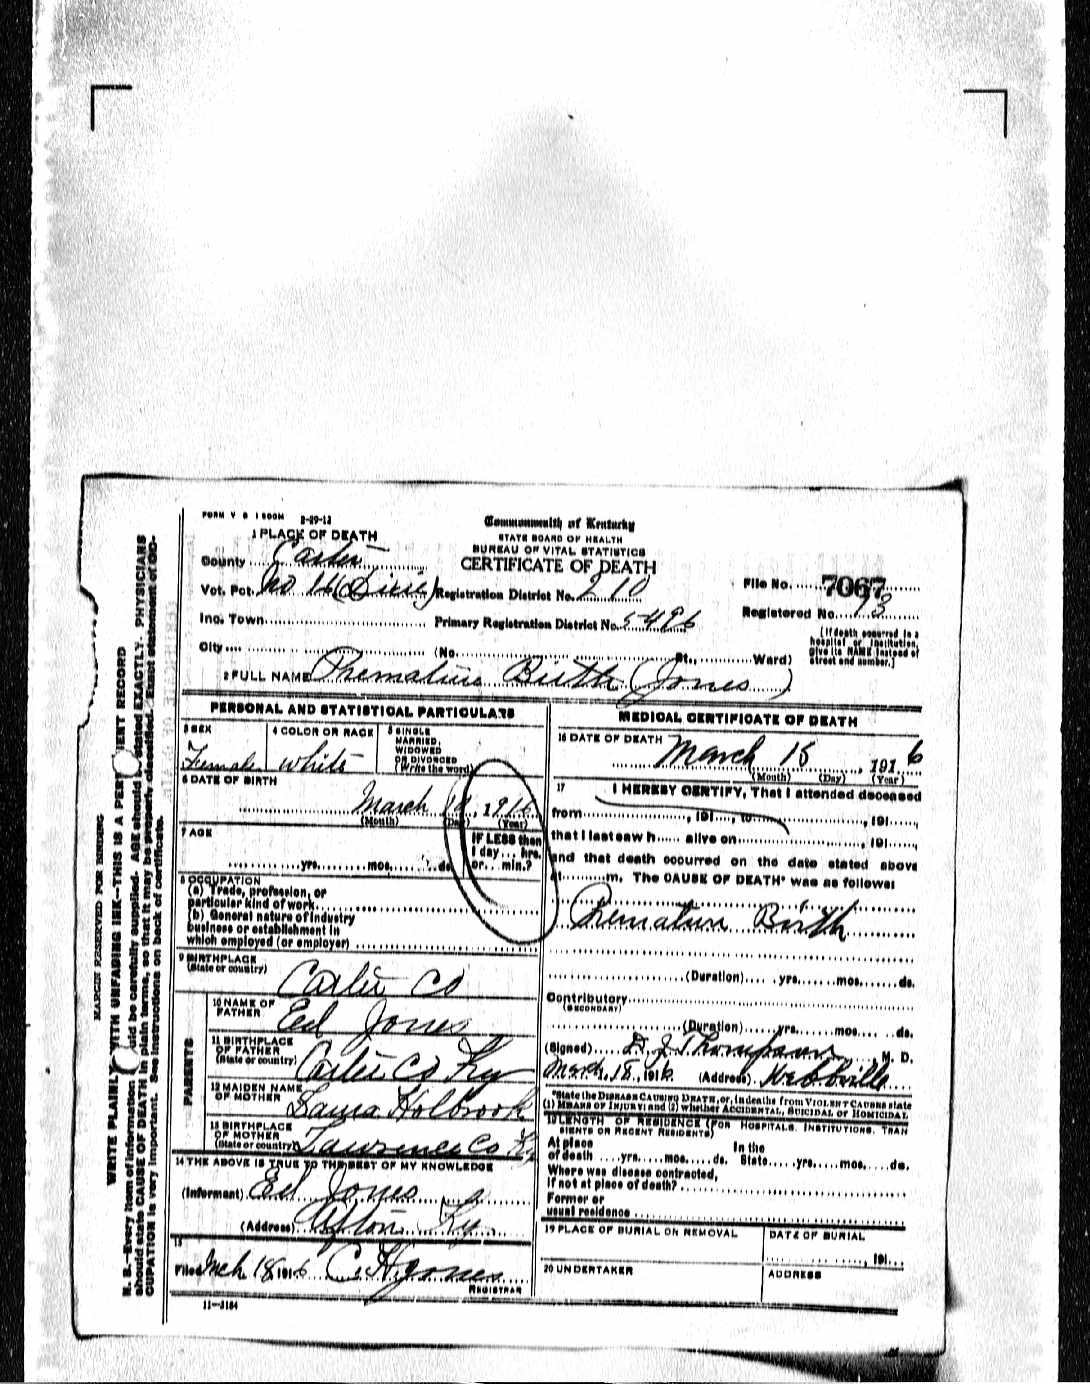 FORM V S 1 500M 8-29-13
Commonwealth of Kentucky
STATE BOARD OF HEALTH
BUREAU OF VITAL STATISTICS
CERTIFICATE OF DEATH
1 PLACE OF DEATH
County Carter
Vot. Pct. No 14 (Dixie) Registration District No. 210
File No. 7067
Inc. Town Primary Registration District No. 5496
Registered No. 93
City (No. St., Ward)
[If death occurred in a hospital or institution, give its NAME instead of street and number.]
2 FULL NAME Premature Birth (Jones)
PERSONAL AND STATISTICAL PARTICULARS
3 SEX
Female
4 COLOR OR RACE
White
5 SINGLE
MARRIED,
WIDOWED
OR DIVORCED
(Write the word)
6 DATE OF BIRTH
March 18, 1916
(Month) (Day) (Year)
7 AGE
yrs. mos. ds.
IF LESS than
1 day... hrs.
or... min.?
8 OCCUPATION
(a) Trade, profession, or
particular kind of work
(b) General nature of industry
business or establishment in
which employed (or employer)
9 BIRTHPLACE
(State or country)
Carter Co
PARENTS
10 NAME OF
FATHER
Ed Jones
11 BIRTHPLACE
OF FATHER
(State or country)
Carter Co Ky
12 MAIDEN NAME
OF MOTHER
Laura Holbrook
13 BIRTHPLACE
OF MOTHER
(State or country)
Lawrence Co Ky
14 THE ABOVE IS TRUE TO THE BEST OF MY KNOWLEDGE
(Informant) Ed Jones
(Address) Ky.
15
Filed Mch 18 1916 C. H. Jones
REGISTRAR
11-3184
MEDICAL CERTIFICATE OF DEATH
16 DATE OF DEATH
March 18, 1916
(Month) (Day) (Year)
17 I HEREBY CERTIFY, That I attended deceased
from , 191 , to , 191
that I last saw h alive on , 191
and that death occurred on the date stated above
at m. The CAUSE OF DEATH* was as follows:
Premature Birth
(Duration) yrs. mos. ds.
Contributory
(SECONDARY)
(Duration) yrs. mos. ds.
(Signed) D. J. Thompson, M. D.
March 18, 1916 (Address) Webbville
*State the DISEASE CAUSING DEATH, or, in deaths from VIOLENT CAUSES state
(1) MEANS OF INJURY; and (2) whether ACCIDENTAL, SUICIDAL or HOMICIDAL
18 LENGTH OF RESIDENCE (FOR HOSPITALS, INSTITUTIONS, TRAN
SIENTS OR RECENT RESIDENTS)
At place In the
of death yrs. mos. ds. State yrs. mos. ds.
Where was disease contracted,
If not at place of death?
Former or
usual residence
19 PLACE OF BURIAL OR REMOVAL
DATE OF BURIAL
, 191
20 UNDERTAKER
ADDRESS
MARGIN RESERVED FOR BINDING
WRITE PLAINLY WITH UNFADING INK-THIS IS A PERMENT RECORD
N. B.-Every item of information should be carefully supplied. AGE should be stated EXACTLY. PHYSICIANS
should state CAUSE OF DEATH in plain terms, so that it may be properly classified. Exact statement of OC-
CUPATION is very important. See instructions on back of certificate.